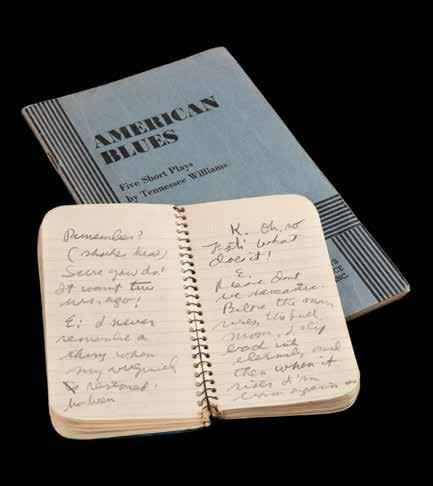 AMERICAN
BLUES
Five Short Plays
by Tennessee Williams
INC.
Remember?
(shakes head)
Sure you do!
It wasnt two
hrs. ago!
E: I never
remember a
thing when
my virginity
is restored!
K. Oh, so
that's what
does it!
E.
Please dont
be sarcastic.
Before the moon
rises, the full
moon, I slip
back into
eternity and
then when it
rises I'm
again